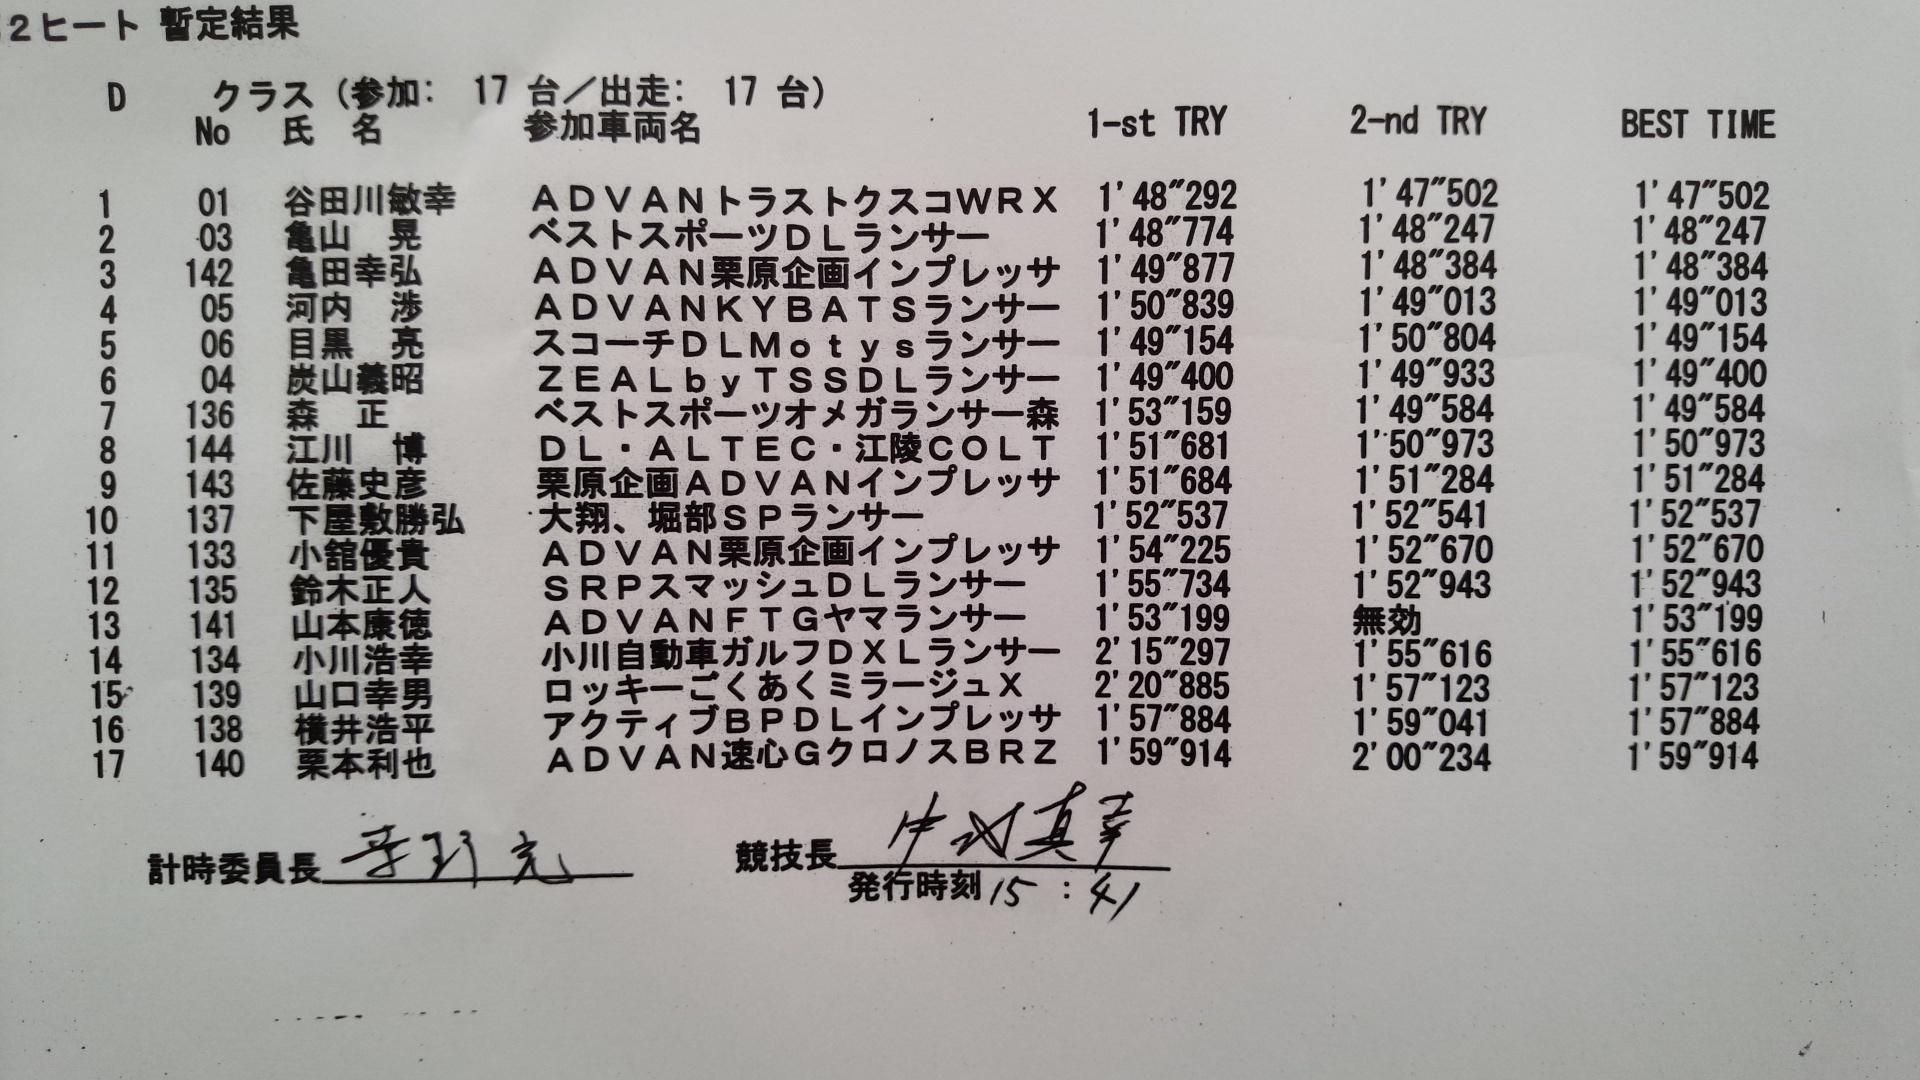 2ヒート 暫定結果
D クラス（参加： 17 台／出走： 17 台）
No 氏 名 参加車両名 1-st TRY 2-nd TRY BEST TIME
1 01 谷田川敏幸 ＡＤＶＡＮトラストクスコＷＲＸ 1'48"292 1'47"502 1'47"502
2 03 亀山 晃 ベストスポーツＤＬランサー 1'48"774 1'48"247 1'48"247
3 142 亀田幸弘 ＡＤＶＡＮ栗原企画インプレッサ 1'49"877 1'48"384 1'48"384
4 05 河内 渉 ＡＤＶＡＮＫＹＢＡＴＳランサー 1'50"839 1'49"013 1'49"013
5 06 目黒 亮 スコーチＤＬＭｏｔｙｓランサー 1'49"154 1'50"804 1'49"154
6 04 炭山義昭 ＺＥＡＬｂｙＴＳＳＤＬランサー 1'49"400 1'49"933 1'49"400
7 136 森 正 ベストスポーツオメガランサー森 1'53"159 1'49"584 1'49"584
8 144 江川 博 ＤＬ・ＡＬＴＥＣ・江陵ＣＯＬＴ 1'51"681 1'50"973 1'50"973
9 143 佐藤史彦 栗原企画ＡＤＶＡＮインプレッサ 1'51"684 1'51"284 1'51"284
10 137 下屋敷勝弘 大翔、堀部ＳＰランサー 1'52"537 1'52"541 1'52"537
11 133 小舘優貴 ＡＤＶＡＮ栗原企画インプレッサ 1'54"225 1'52"670 1'52"670
12 135 鈴木正人 ＳＲＰスマッシュＤＬランサー 1'55"734 1'52"943 1'52"943
13 141 山本康徳 ＡＤＶＡＮＦＴＧヤマランサー 1'53"199 無効 1'53"199
14 134 小川浩幸 小川自動車ガルフＤＸＬランサー 2'15"297 1'55"616 1'55"616
15 139 山口幸男 ロッキーごくあくミラージュＸ 2'20"885 1'57"123 1'57"123
16 138 横井浩平 アクティブＢＰＤＬインプレッサ 1'57"884 1'59"041 1'57"884
17 140 栗本利也 ＡＤＶＡＮ速心ＧクロノスＢＲＺ 1'59"914 2'00"234 1'59"914
計時委員長 競技長 真幸
発行時刻 15 : 41